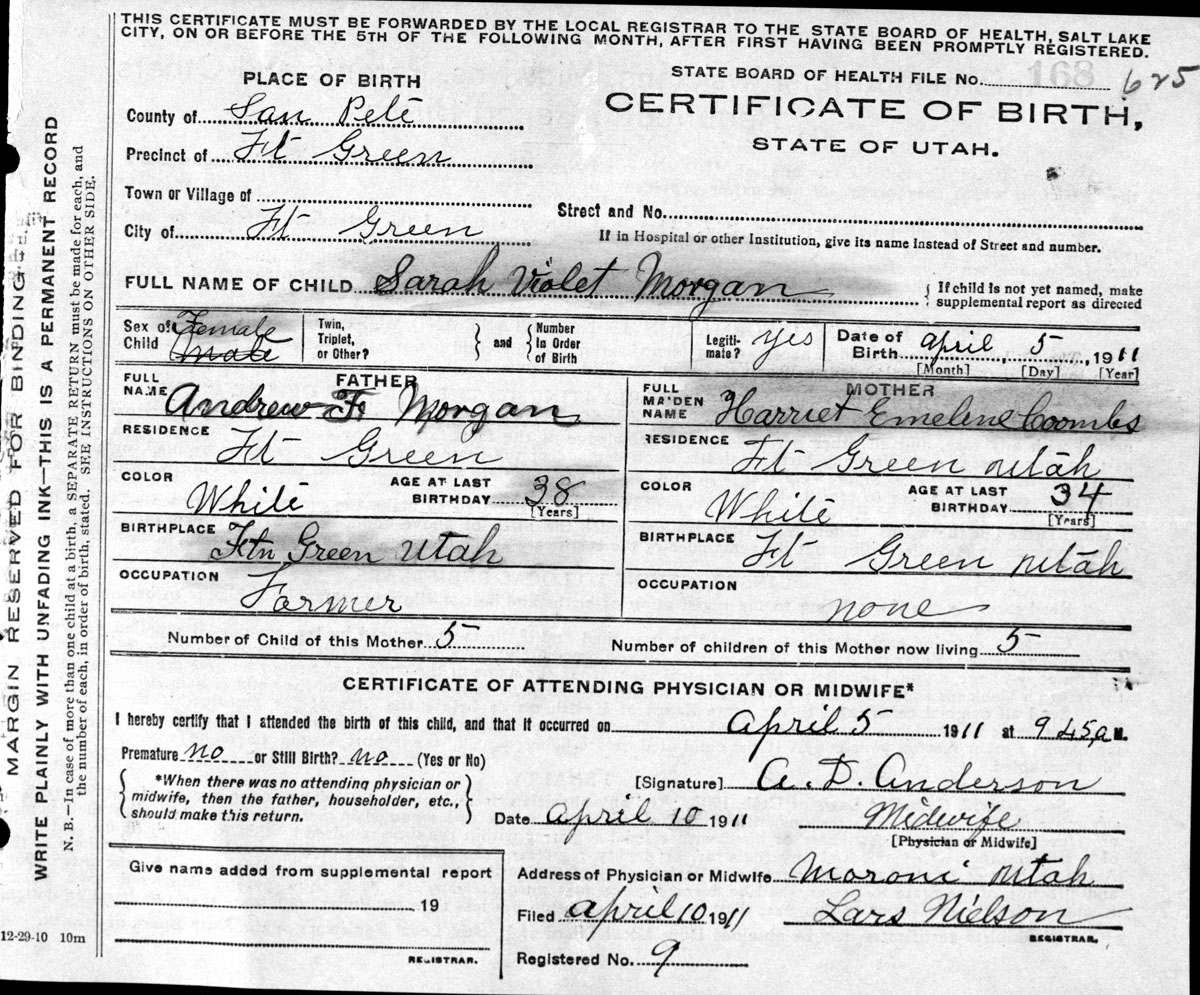 THIS CERTIFICATE MUST BE FORWARDED BY THE LOCAL REGISTRAR TO THE STATE BOARD OF HEALTH, SALT LAKE
CITY, ON OR BEFORE THE 5TH OF THE FOLLOWING MONTH, AFTER FIRST HAVING BEEN PROMPTLY REGISTERED.
MARGIN RESERVED FOR BINDING
WRITE PLAINLY WITH UNFADING INK—THIS IS A PERMANENT RECORD
N. B.—In case of more than one child at a birth, a SEPARATE RETURN must be made for each, and
the number of each, in order of birth, stated. SEE INSTRUCTIONS ON OTHER SIDE.
PLACE OF BIRTH
STATE BOARD OF HEALTH FILE No. 168 625
CERTIFICATE OF BIRTH,
STATE OF UTAH.
County of San Pete
Precinct of Ft Green
Town or Village of
Street and No.
City of Ft Green
If in Hospital or other Institution, give its name instead of Street and number.
FULL NAME OF CHILD Sarah Violet Morgan
{ If child is not yet named, make
supplemental report as directed
Sex of Child Female male
Twin, Triplet, or Other?
} and {
Number In Order of Birth
Legitimate? yes
Date of Birth April 5, 1911
[Month] [Day] [Year]
FATHER
FULL NAME Andrew F Morgan
RESIDENCE Ft Green
COLOR White
AGE AT LAST BIRTHDAY 38
[Years]
BIRTHPLACE Ftn Green Utah
OCCUPATION Farmer
MOTHER
FULL MAIDEN NAME Harriet Emeline Coombs
RESIDENCE Ft Green Utah
COLOR White
AGE AT LAST BIRTHDAY 34
[Years]
BIRTHPLACE Ft Green Utah
OCCUPATION none
Number of Child of this Mother 5
Number of children of this Mother now living 5
CERTIFICATE OF ATTENDING PHYSICIAN OR MIDWIFE*
I hereby certify that I attended the birth of this child, and that it occurred on April 5 1911 at 9 45 a M.
Premature no or Still Birth? no (Yes or No)
{ *When there was no attending physician or
midwife, then the father, householder, etc.,
should make this return. }
[Signature] A. D. Anderson
Date April 10 1911
Midwife
[Physician or Midwife]
Give name added from supplemental report
19
REGISTRAR.
Address of Physician or Midwife Moroni Utah
Filed April 10 1911
Lars Nielson
REGISTRAR.
Registered No. 9
12-29-10 10m